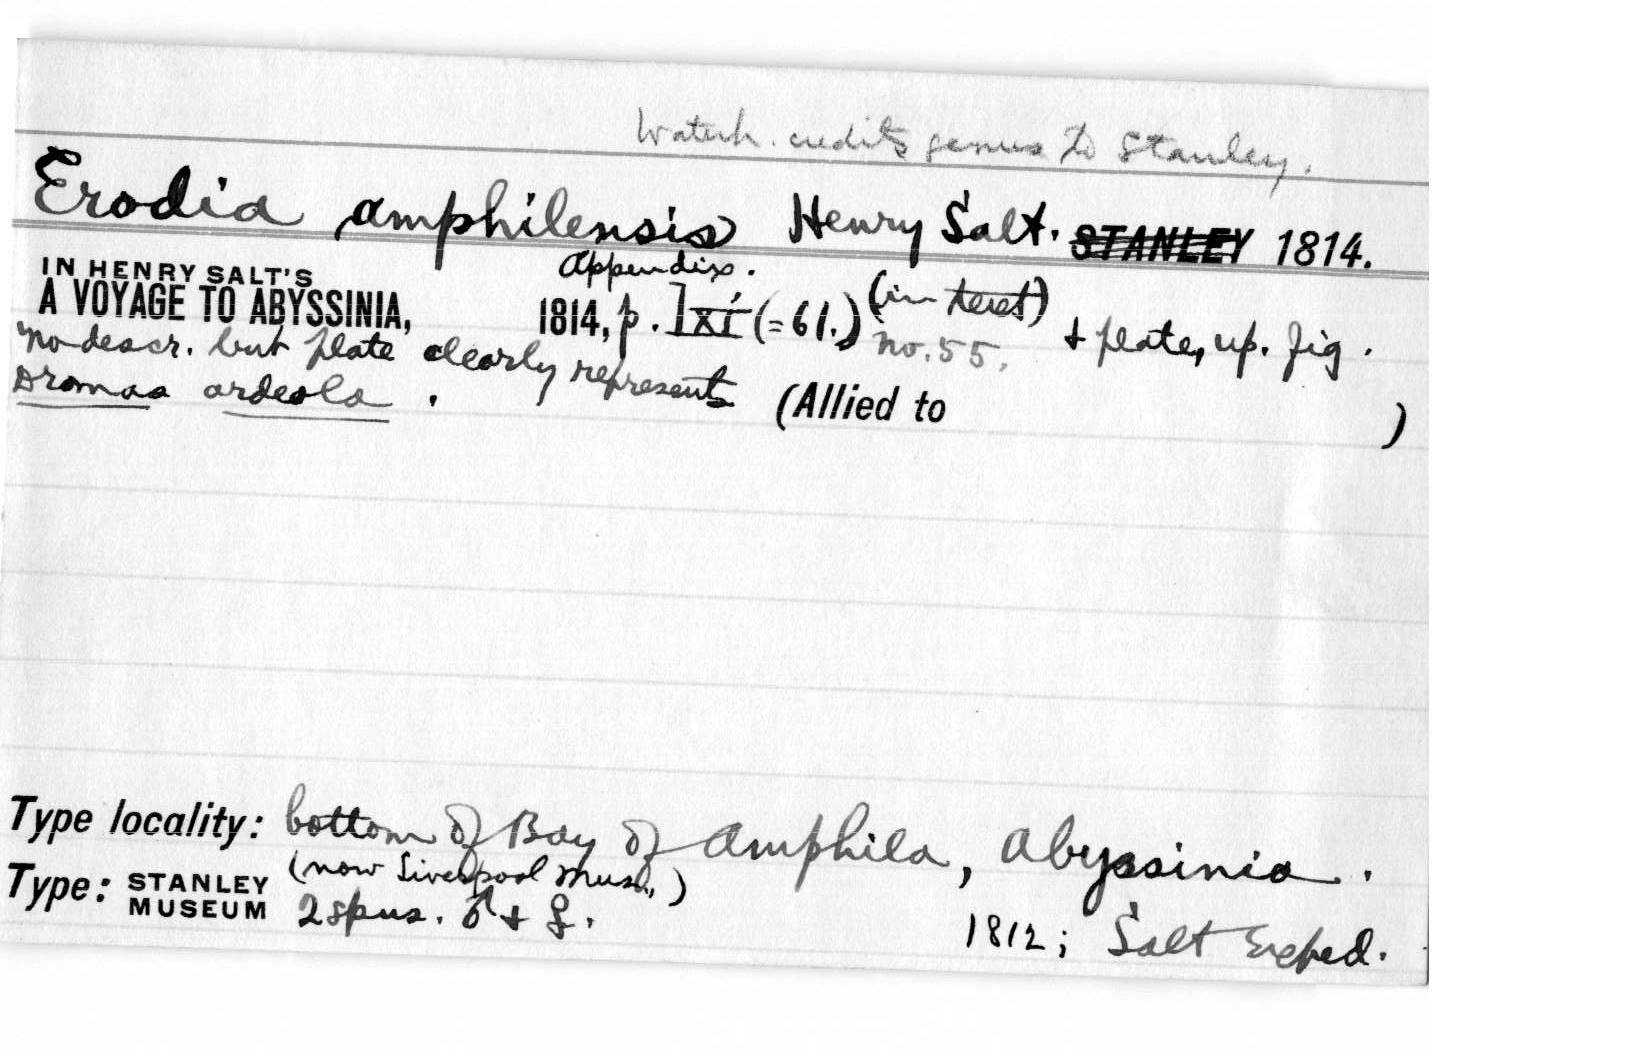 Waterh. credits genus to Stanley.
Erodia amphilensis Henry Salt. STANLEY 1814.
IN HENRY SALT'S
A VOYAGE TO ABYSSINIA, 1814, Appendix. p. lxi (=61.) (in text) no. 55. + plate, up. fig.
no descr. but plate clearly represents
Dromas ardeola.
(Allied to )
Type locality: bottom of Bay of Amphila, Abyssinia.
Type: STANLEY MUSEUM (now Liverpool Mus.,)
2 spms. ♂ + ♀. 1812; Salt Exped.